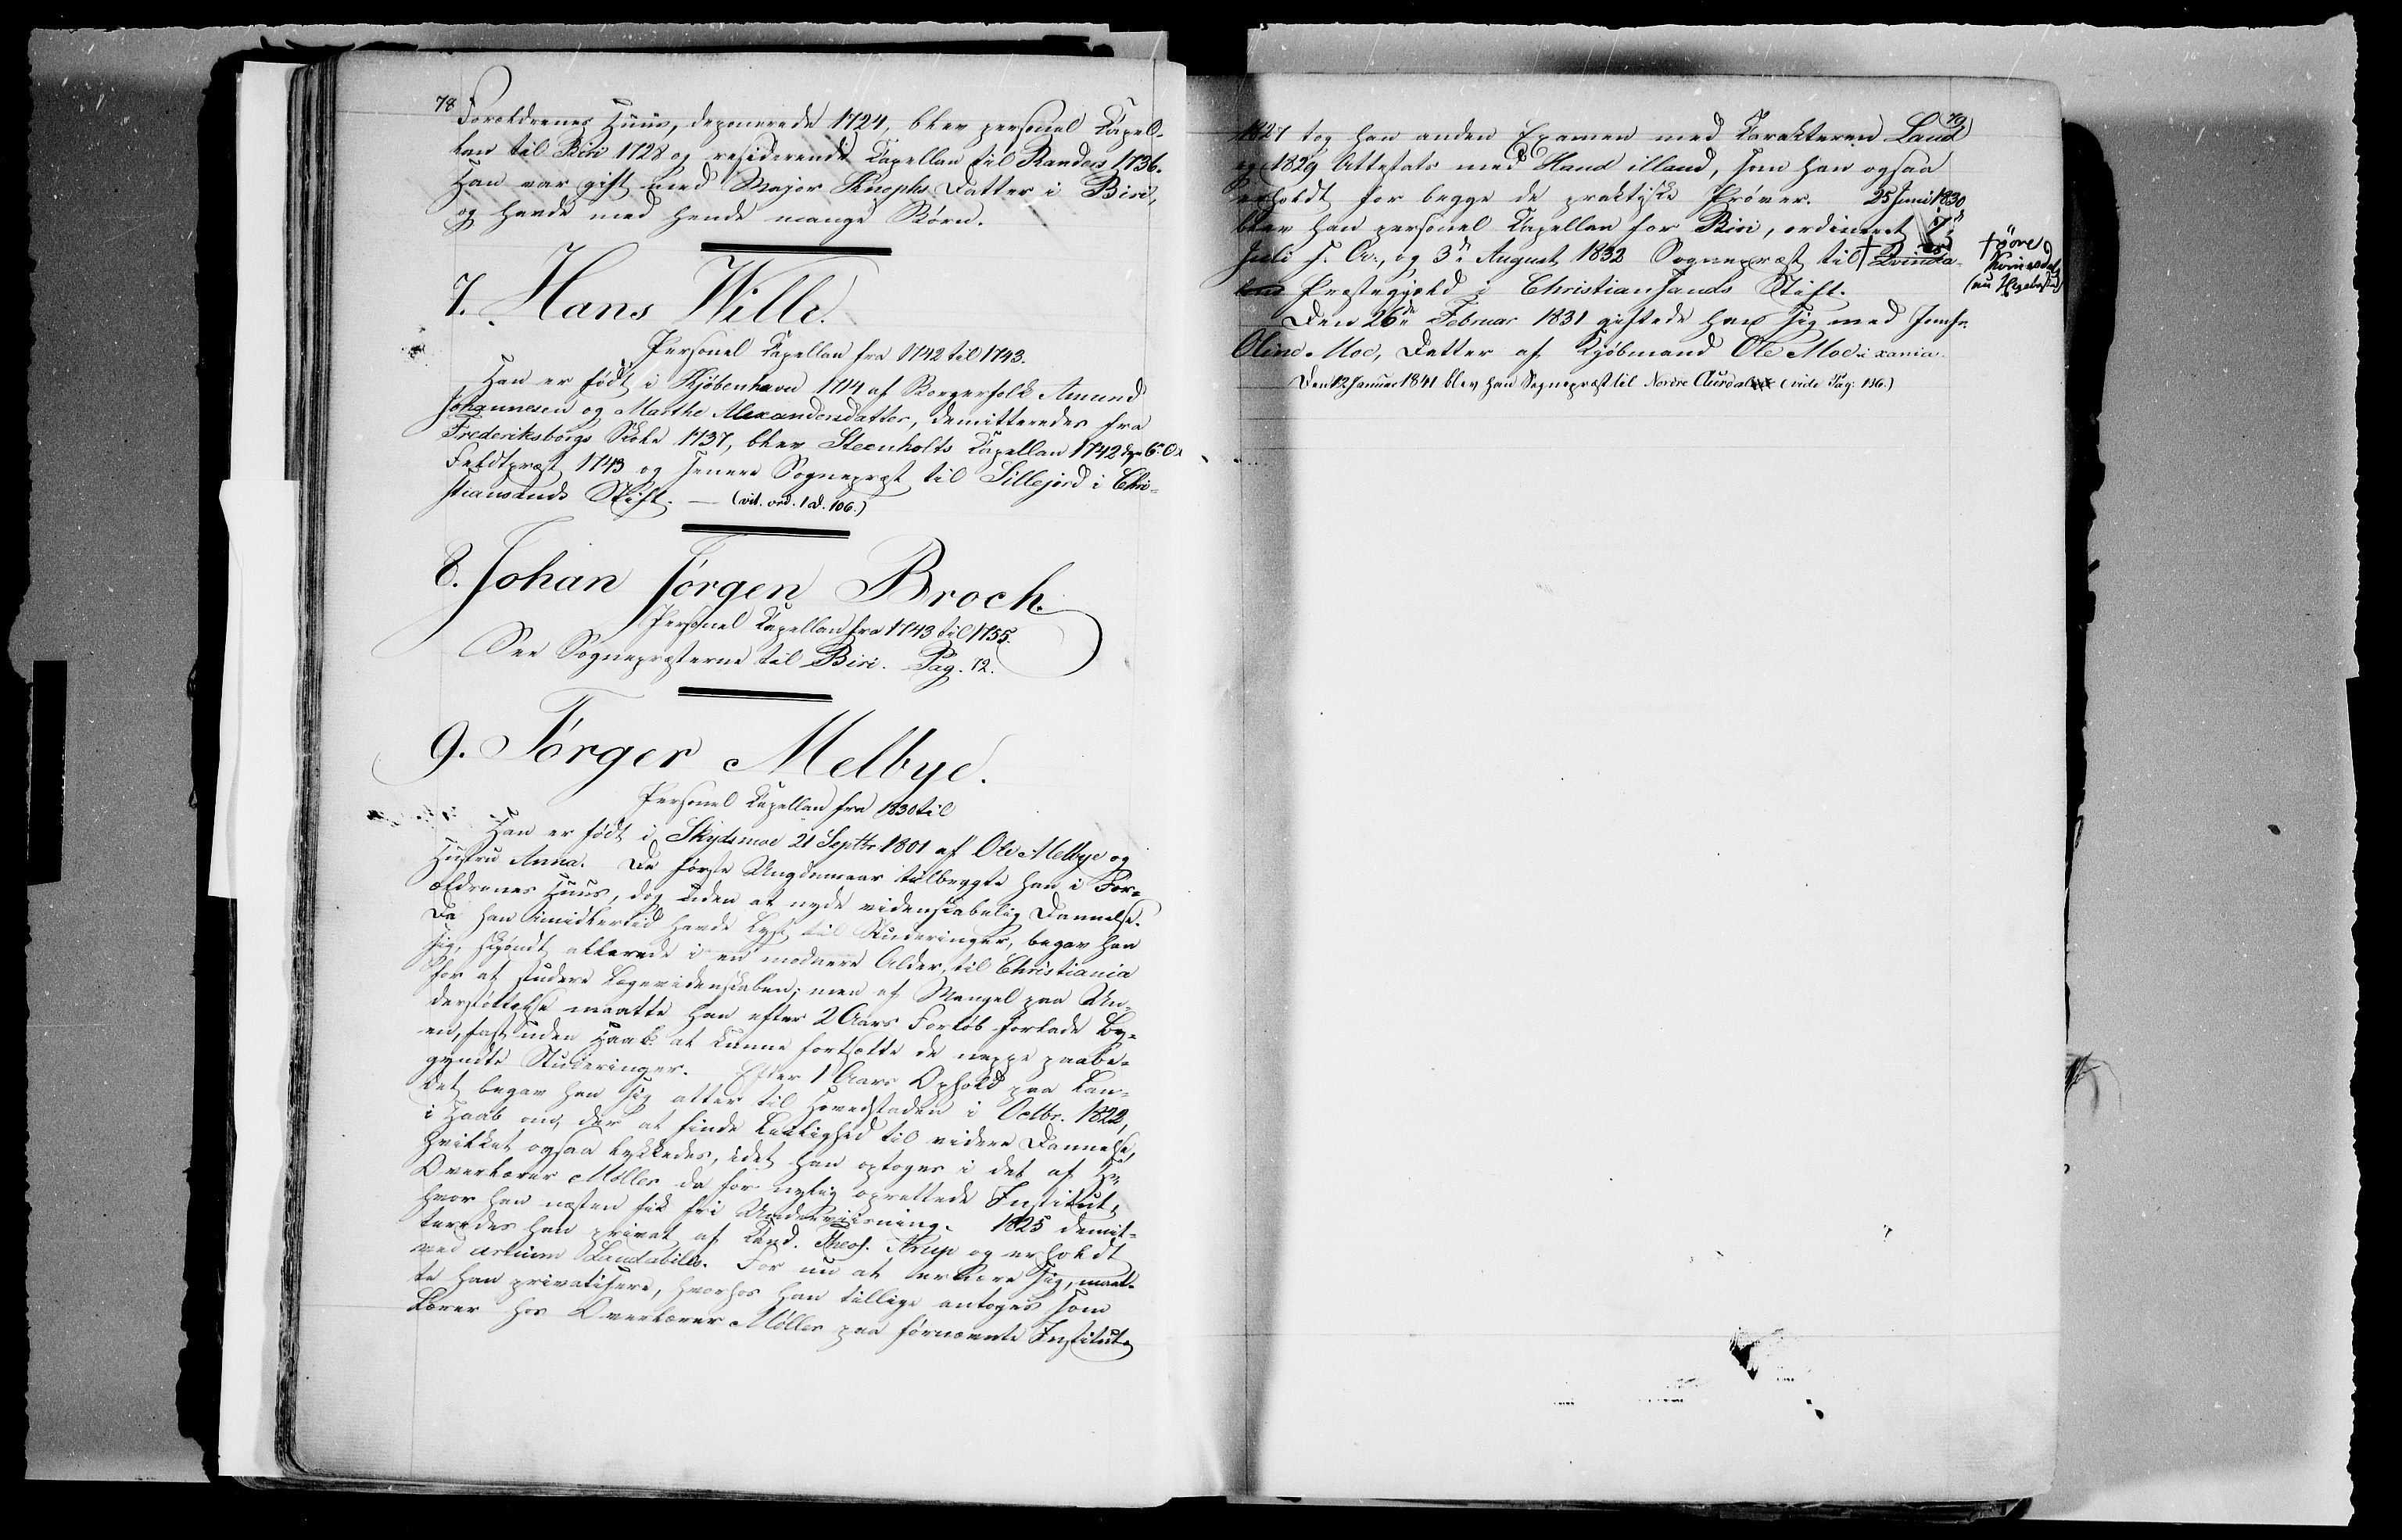 78
Forældrenes Huus, deponerede 1724, blev personel Capel-
lan til Biri 1728 og residerende Capellan til Randers 1736.
Han var gift med Major Knophs Datter i Biri,
og havde med hende mange Børn.
7. Hans Wille.
Personel Capellan fra 1742 til 1743.
Han er født i Kjøbenhavn 1714 af Borgerfolk Amund
Johannesen og Marthe Alexandersdatter, demitteredes fra
Frederiksborgs Skole 1737, blev Steenholts Capellan 1742
Feldtpræst 1743 og senere Sognepræst til Sillejord i Chri-
stiansands Stift. — (vit. ord. 1 A. 106.)
8. Johan Jørgen Broch.
Personel Capellan fra 1743 til 1755.
See Sognepræsterne til Biri. Pag. 12.
9. Tørger Melbye.
Personel Capellan fra 1830 til
Han er født i Skydsmoe 21 Septbr. 1801 af Ole Melbye og
Hustru Anna. De første Ungdomsaar tilbragte han i For-
ældrenes Huus, dog uden at nyde videnskabelig Dannelse.
Da han imidlertid havde Lyst til Studeringer, begav han
sig, skjøndt allerede i en modnere Alder, til Christiania
for at studere Lægevidenskaben; men af Mangel paa Un-
derstøttelse maatte han efter 2 Aars Forløb forlade By-
en, fast uden Haab at kunne fortsætte de neppe paabe-
gyndte Studeringer. Efter 1 Aars Ophold paa Lan-
det begav han sig atter til Hovedstaden i Octbr. 1822,
i Haab om der at finde Leilighed til videre Dannelse,
hvilket ogsaa lykkedes, idet han optoges i det af Hr.
Overlærer Møller da for nylig oprettede Institut,
hvor han næsten fik fri Underviisning. 1825 demit-
teredes han privat af Cand. Theol. Arup og erholdt
ved artium Laudabilis. For nu at ernære sig, maat-
te han privatisere, hvorhos han tillige antoges som
Lærer hos Overlærer Møller paa førnævnte Institut.
79
1827 tog han anden Examen med Karakteren Laud
og 1829 Attestats med Haud illaud, som han ogsaa
erholdt for begge de praktiske Prøver. 25 Juni 1830
blev han personel Capellan for Biri, ordineret
Juli s. A., og 3die August 1832 Sognepræst til † Qvindis-
Præstegjæld i Christiansands Stift.
† Øvre
Kvinesdal
(nu Hægebostad)
Den 26de Februar 1831 giftede han sig med Jomfr.
Oline Moe, Datter af Kjøbmand Ole Moe i Xania.
Den 12 Januar 1841 blev han Sognepræst til Nordre Aurdal (vide Pag. 136.)